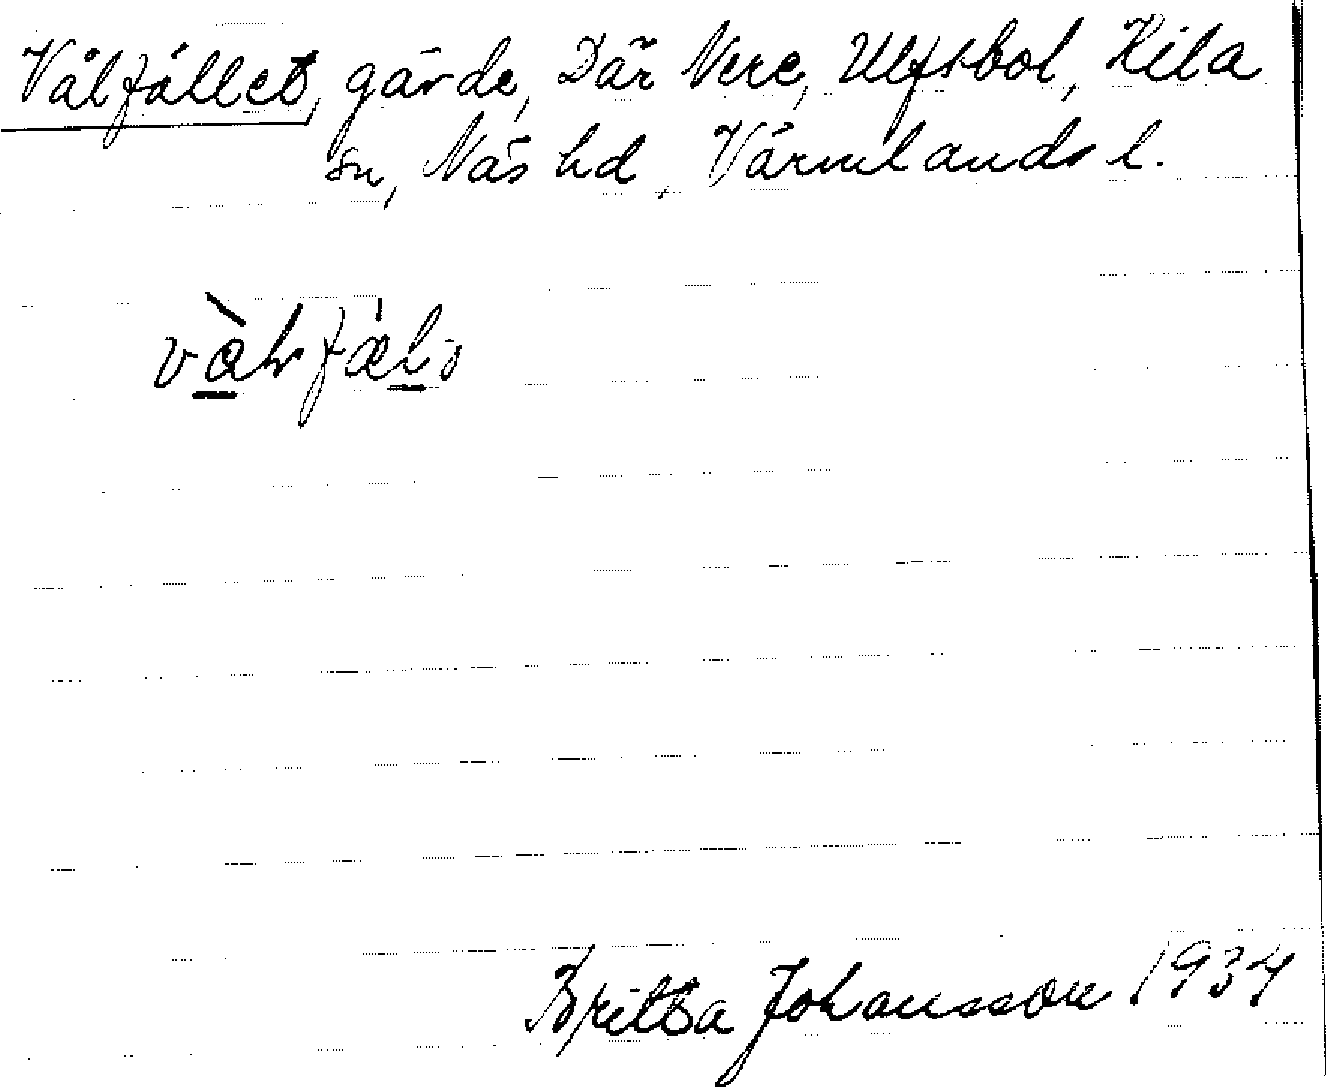 Vålfället, gärde, Där Nere, Ulfsbol, Kila
sn, Näs hd, Värmlands l.
Britta Johansson 1934